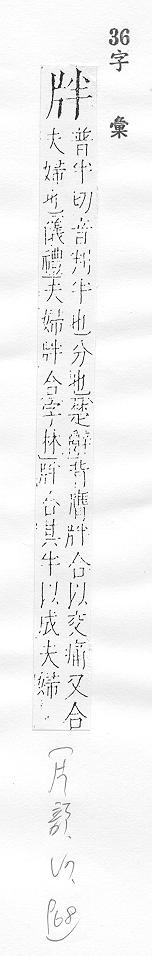 36
字彙
牉
普半切音判半也分也楚辭背膺牉合以交痛又合
夫婦也儀禮夫婦牉合字林牉合其半以成夫婦
(片部、
P68)